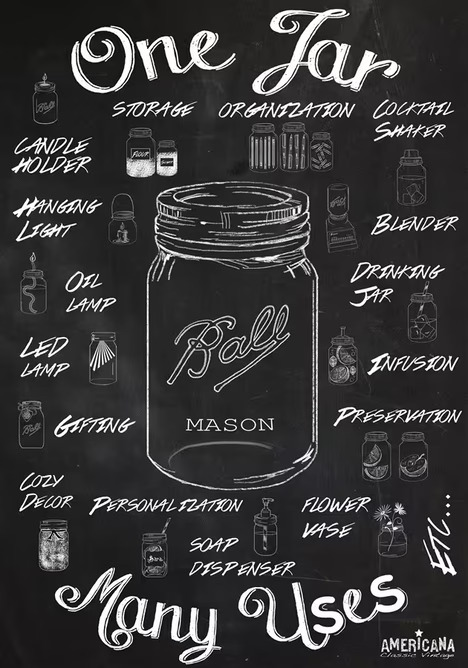 One Jar
STORAGE
ORGANIZATION
COCKTAIL
SHAKER
CANDLE
HOLDER
HANGING
LIGHT
BLENDER
OIL
LAMP
DRINKING
JAR
LED
LAMP
INFUSION
Ball
MASON
GIFTING
PRESERVATION
COZY
DECOR
PERSONALIZATION
SOAP
DISPENSER
FLOWER
VASE
ETC...
Many Uses
AMERICANA
Classic Vintage